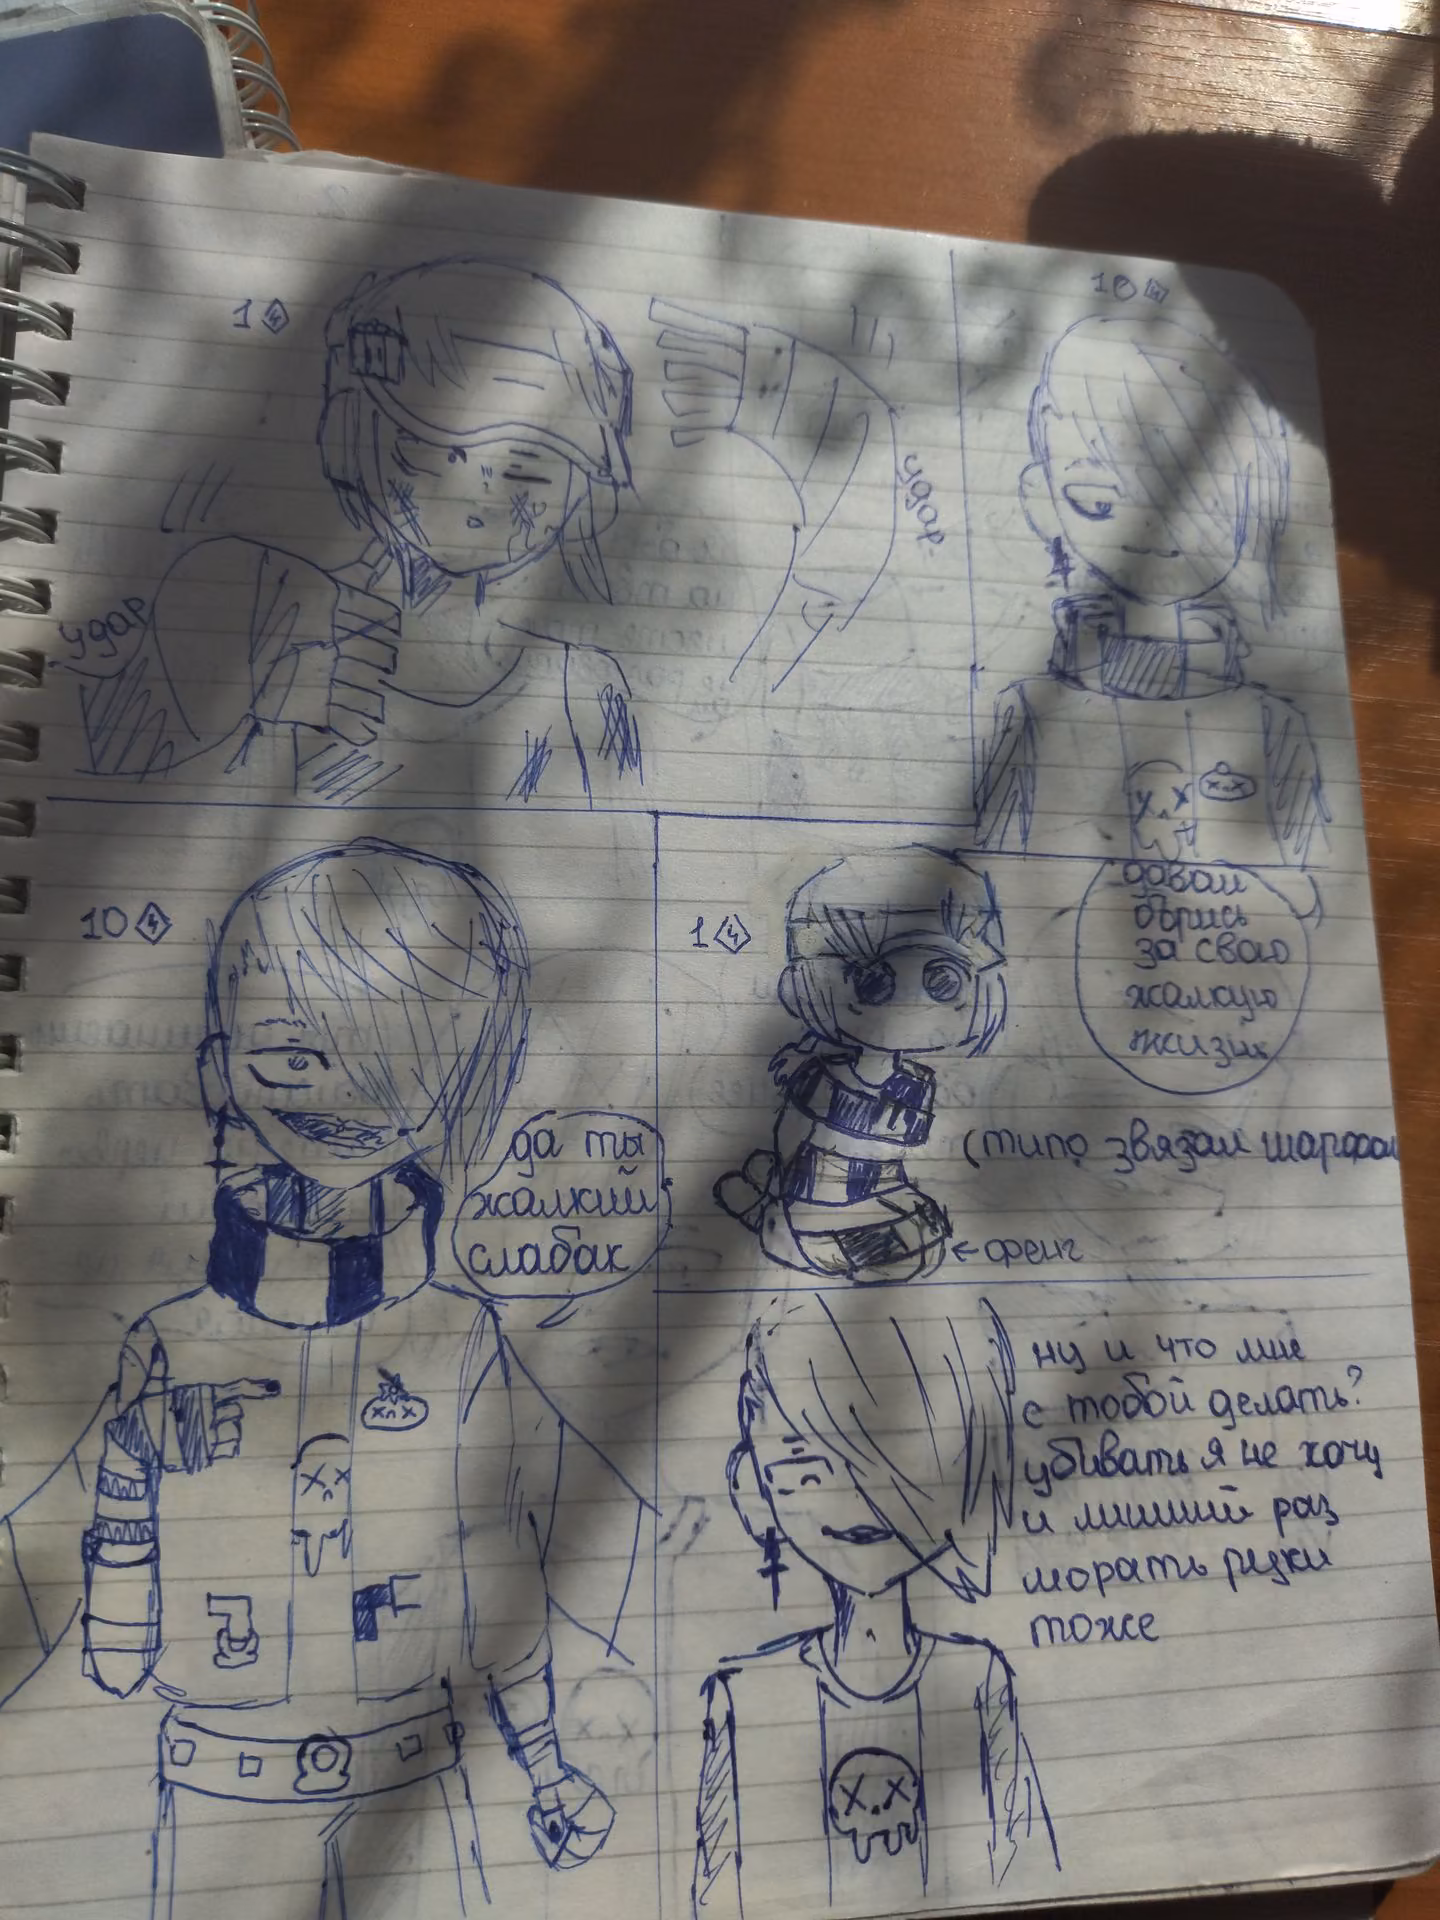 1
10
удар
удар
давай
борись
за свою
жалкую
жизнь
10
1
да ты
жалкий
слабак
(типо звязал шарфом
← фенг
ну и что мне
с тобой делать?
убивать я не хочу
и лишний раз
морать руки
тоже